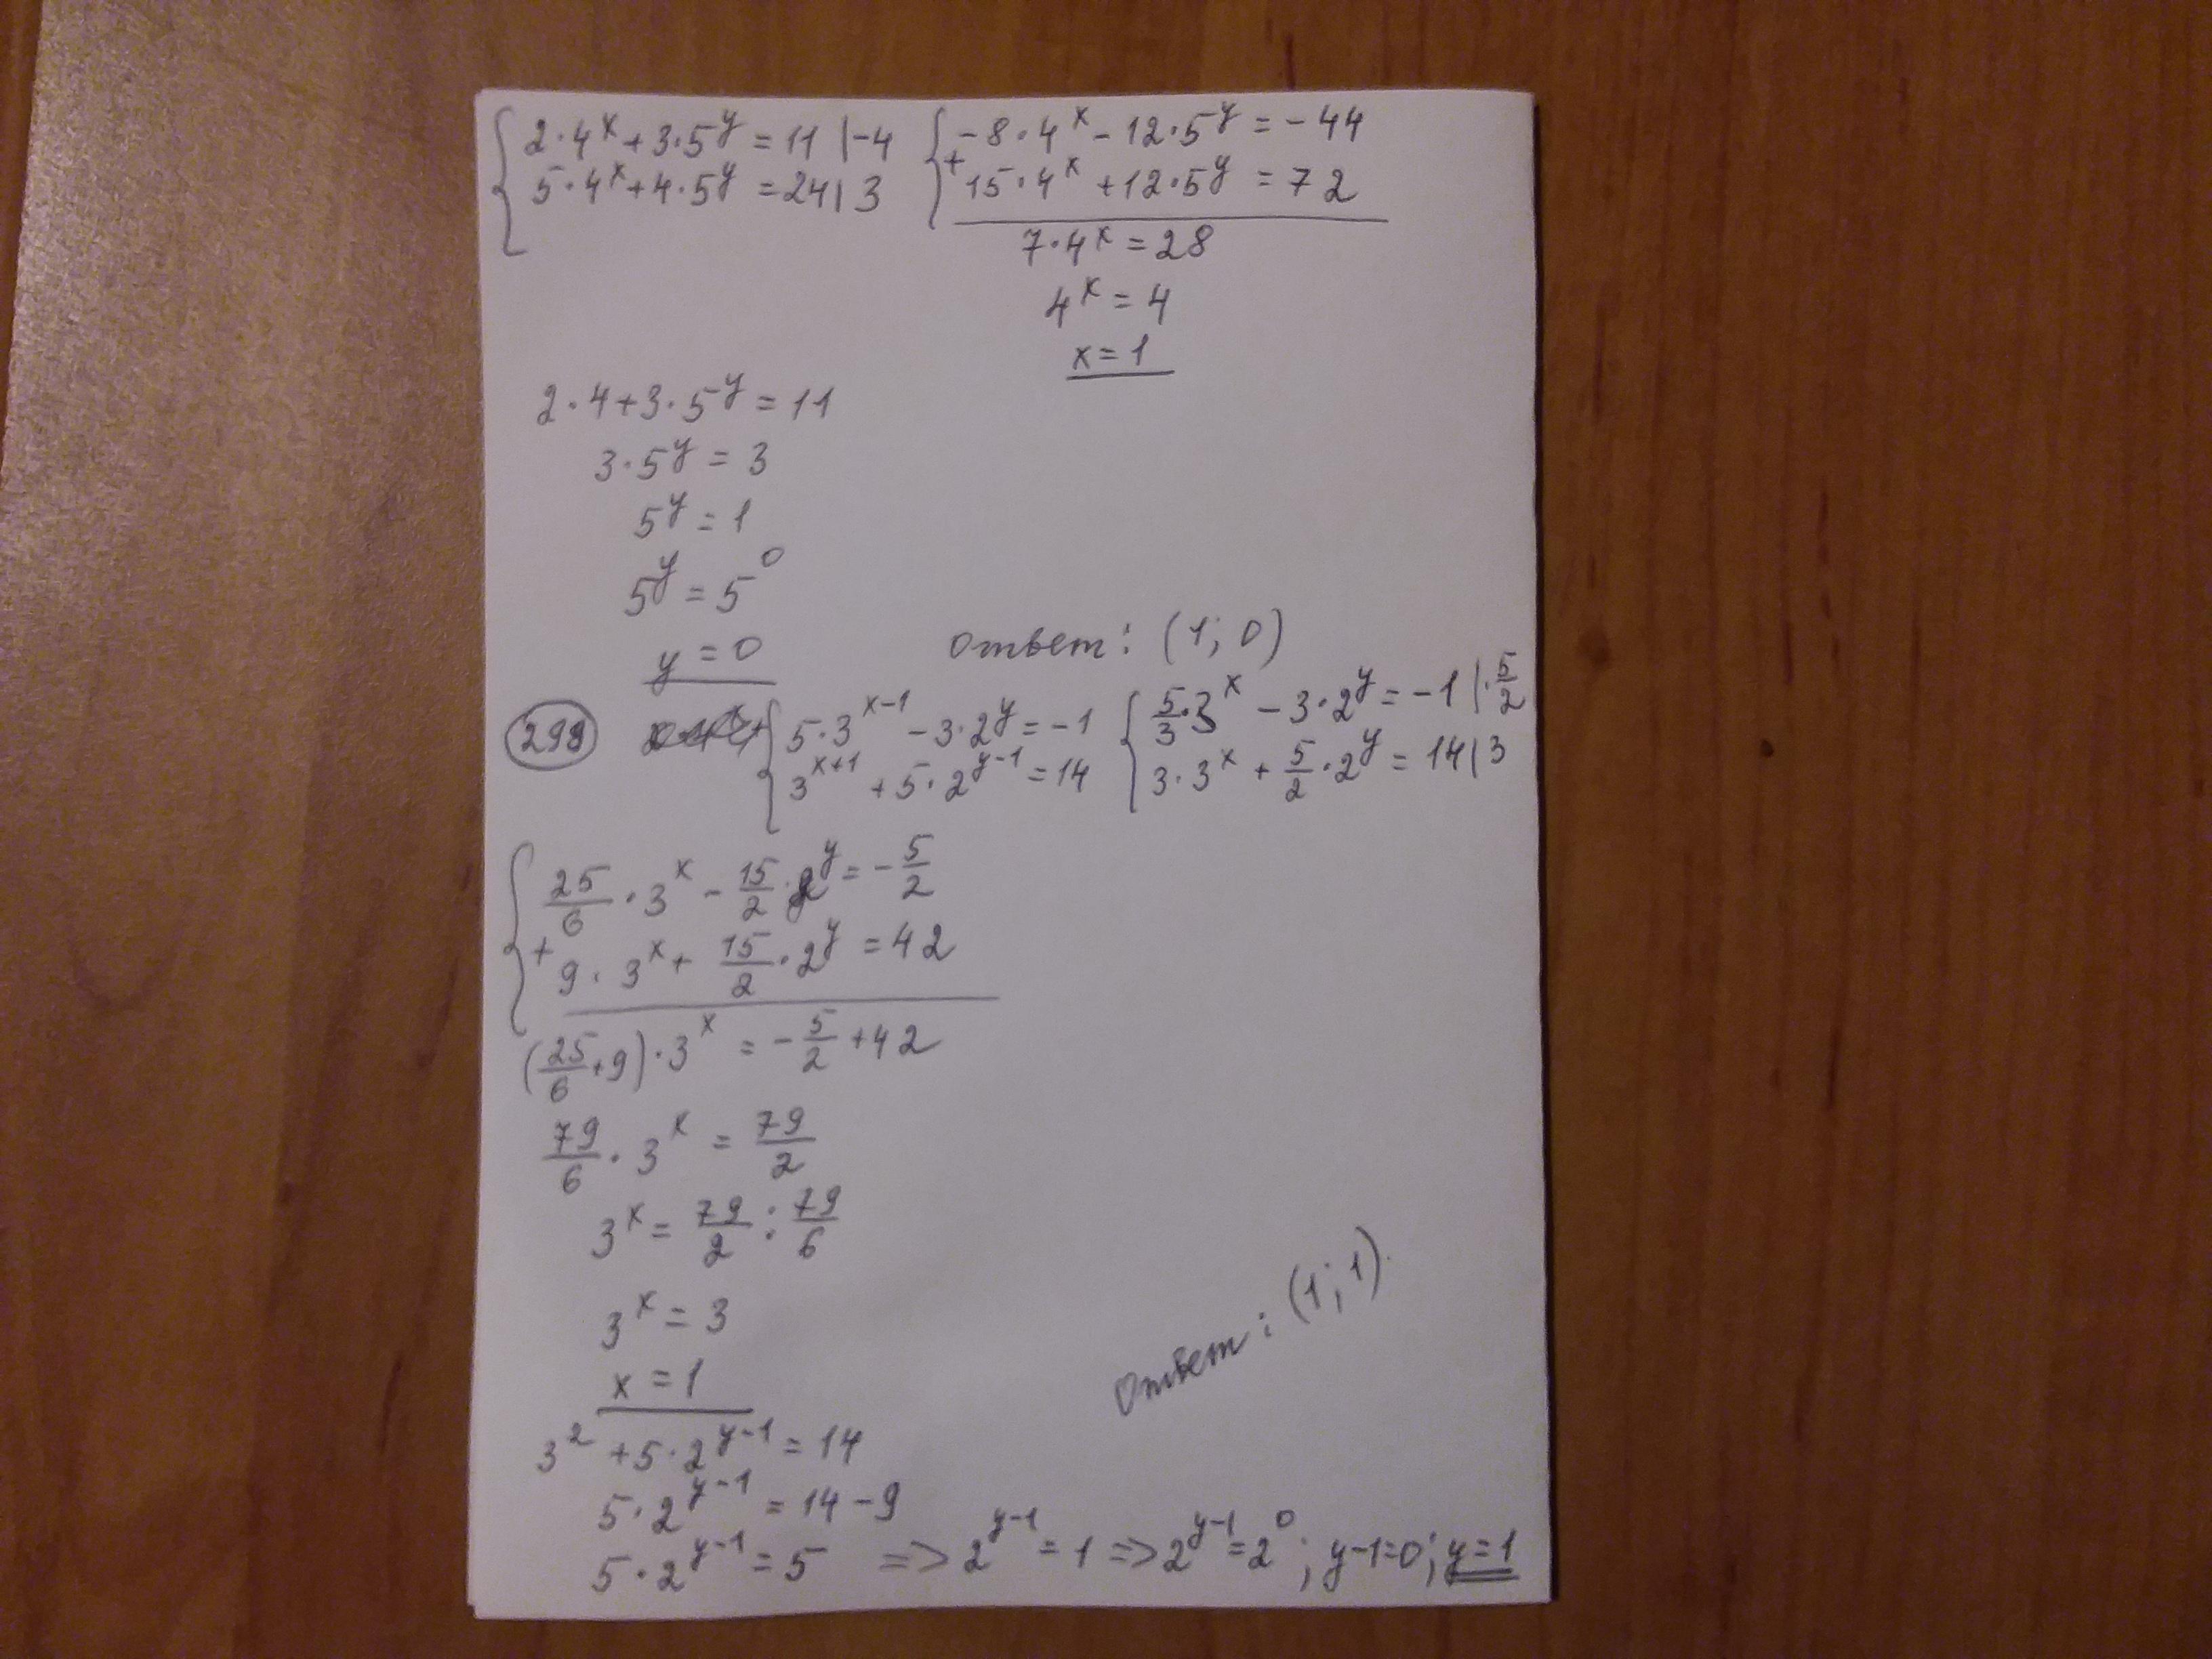 2·4^x+3·5^y=11 |-4
5·4^x+4·5^y=24 | 3
-8·4^x-12·5^y=-44
+ 15·4^x+12·5^y=72
7·4^x=28
4^x=4
x=1
2·4+3·5^y=11
3·5^y=3
5^y=1
5^y=5^0
y=0
Ответ: (1; 0)
5·3^(x-1)-3·2^y=-1
3^(x+1)+5·2^(y-1)=14
5/3·3^x-3·2^y=-1 |·5/2
3·3^x+5/2·2^y=14 | 3
25/6·3^x-15/2·2^y=-5/2
+ 9·3^x+15/2·2^y=42
(25/6+9)·3^x=-5/2+42
79/6·3^x=79/2
3^x=79/2:79/6
3^x=3
x=1
3^2+5·2^(y-1)=14
5·2^(y-1)=14-9
5·2^(y-1)=5 => 2^(y-1)=1 => 2^(y-1)=2^0; y-1=0; y=1
Ответ: (1; 1).